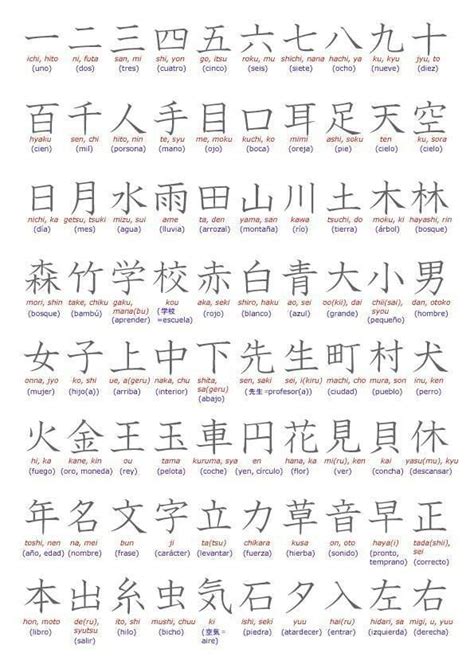 一 二 三 四 五 六 七 八 九 十
ichi, hito ni, futa san, mi shi, yon go, itsu roku, mu shichi, nana hachi, ya ku, kyu jyu, to
(uno) (dos) (tres) (cuatro) (cinco) (seis) (siete) (ocho) (nueve) (diez)
百 千 人 手 目 口 耳 足 天 空
hyaku sen, chi hito, nin te, syu me, moku kuchi, ko mimi ashi, soku ten ku, sora
(cien) (mil) (porsona) (mano) (ojo) (boca) (oreja) (pie) (cielo) (cielo)
日 月 水 雨 田 山 川 土 木 林
nichi, ka getsu, tsuki mizu, sui ame ta, den yama, san kawa tsuchi, do moku, ki hayashi, rin
(día) (mes) (agua) (lluvia) (arrozal) (montaña) (río) (tierra) (árbol) (bosque)
森 竹 学 校 赤 白 青 大 小 男
mori, shin take, chiku gaku, kou aka, seki shiro, haku ao, sei oo(kii), dai chii(sai), dan, otoko
(bosque) (bambú) mana(bu) (学校 (rojo) (blanco) (azul) (grande) syou (hombre)
(aprender) =escuela) (pequeño)
女 子 上 中 下 先 生 町 村 犬
onna, jyo ko, shi ue, a(geru) naka, chu shita, sen, saki sei, i(kiru) machi, cho mura, son inu, ken
(mujer) (hijo(a)) (arriba) (interior) sa(geru) (先生 =profesor(a)) (ciudad) (pueblo) (perro)
(abajo)
火 金 王 玉 車 円 花 見 貝 休
hi, ka kane, kin ou tama kuruma, sya en hana, ka mi(ru), ken kai yasu(mu), kyu
(fuego) (oro, moneda) (rey) (pelota) (coche) (yen, circulo) (flor) (ver) (concha) (descansar)
年 名 文 字 立 力 草 音 早 正
toshi, nen na, mei bun ji ta(tsu) chikara kusa on, oto haya(i) tada(shii),
(año, edad) (nombre) (frase) (carácter) (levantar) (fuerza) (hierba) (sonido) (pronto, sei
temprano) (correcto)
本 出 糸 虫 気 石 夕 入 左 右
hon, moto de(ru), ito, shi mushu, chu ki ishi, seki yuu hai(ru) hidari, sa migi, u, yuu
(libro) syutsu (hilo) (bicho) (空氣= (piedra) (atardecer) (entrar) (izquierda) (derecha)
(salir) aire)